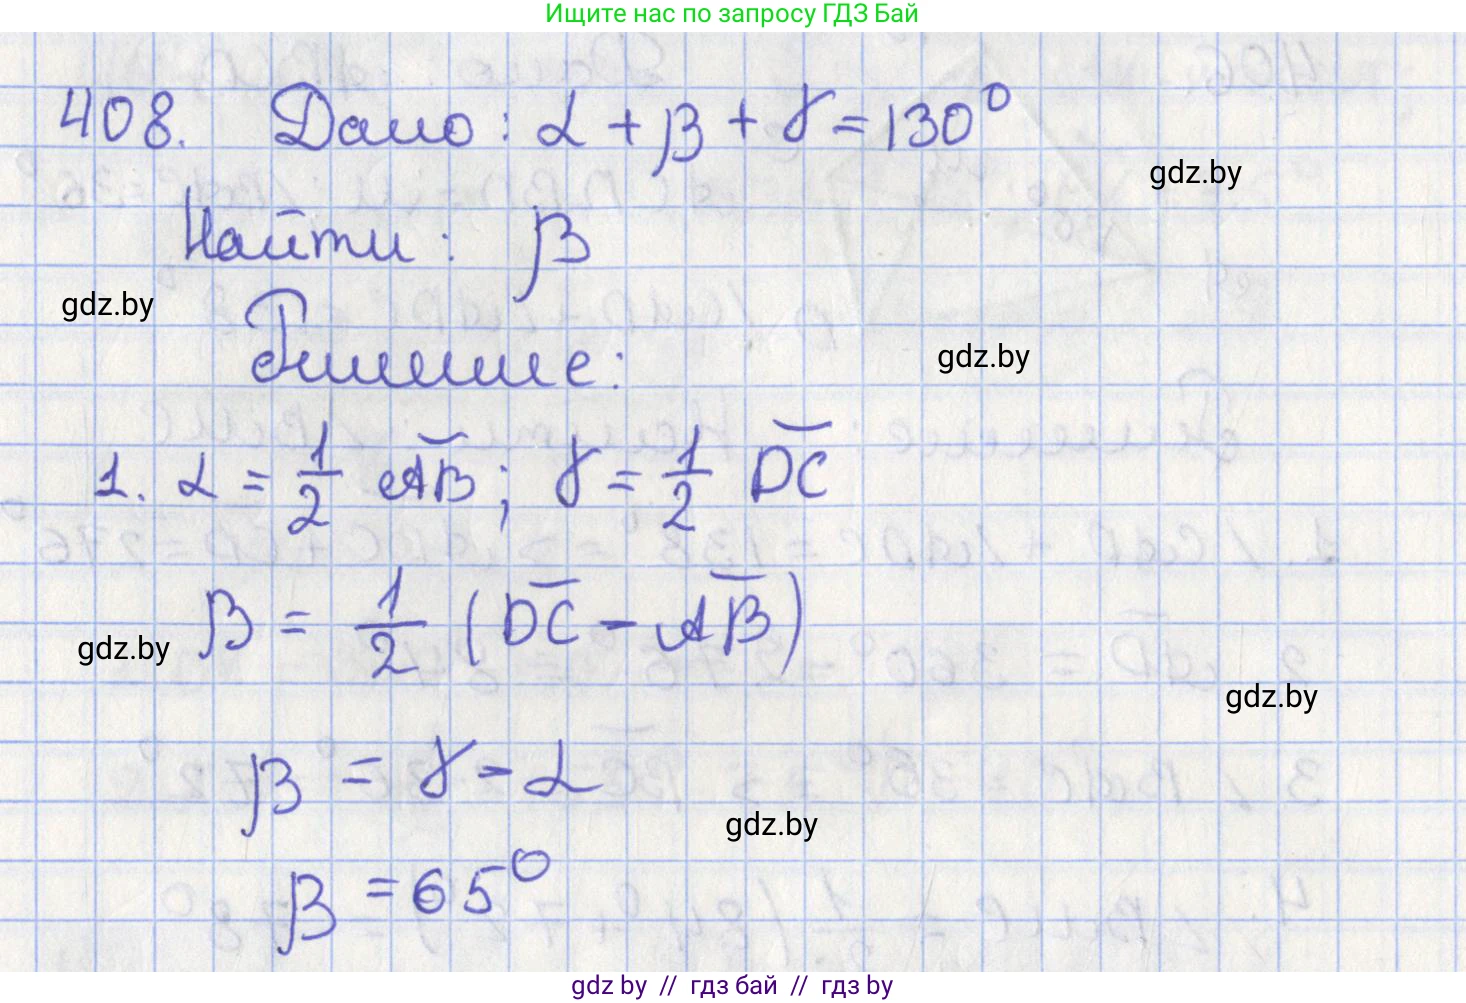 Ищите нас по запросу ГДЗ Бай
408. Дано: α + β + γ = 130°
gdz.by
Найти: β
gdz.by
Решение:
gdz.by
1. α = 1/2 AB; γ = 1/2 DC
β = 1/2 (DC - AB)
gdz.by
gdz.by
β = γ - α
gdz.by
β = 65°
gdz by // гдз бай // гдз by